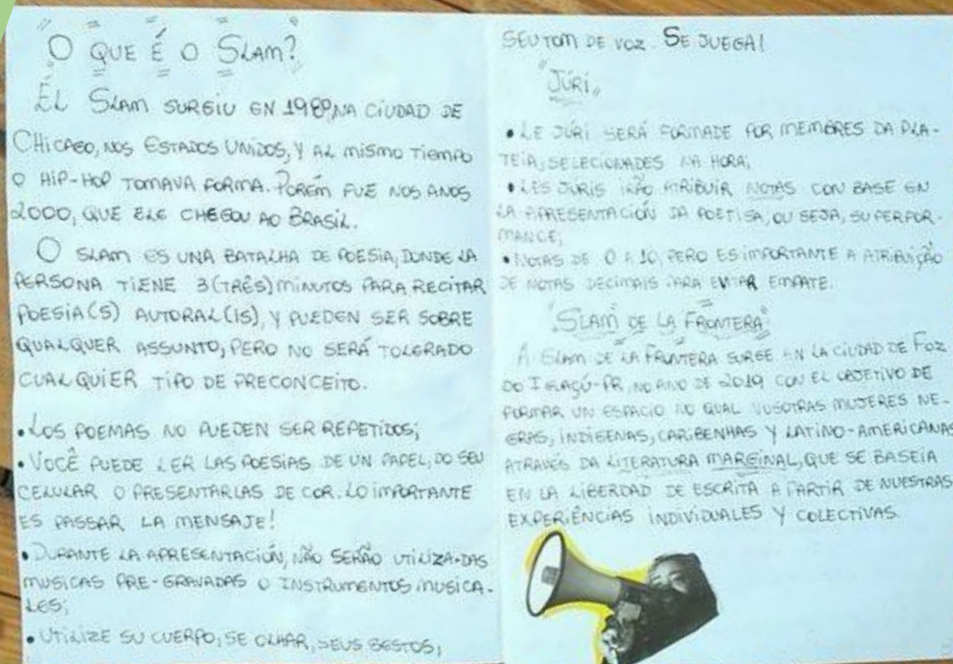 "O QUE É O SLAM?"
EL SLAM SURGIU EN 1989, NA CIUDAD DE
CHICAGO, NOS ESTADOS UNIDOS, Y AL MISMO TIEMPO
O HIP-HOP TOMAVA FORMA. PORÉM FUE NOS ANOS
2000, QUE ELE CHEGOU AO BRASIL.
O SLAM ES UNA BATALHA DE POESIA, DONDE LA
PERSONA TIENE 3 (TRÊS) MINUTOS PARA RECITAR
POESIA(S) AUTORAL(IS), Y PUEDEN SER SOBRE
QUALQUER ASSUNTO, PERO NO SERÁ TOLERADO
CUALQUIER TIPO DE PRECONCEITO.
• LOS POEMAS NO PUEDEN SER REPETIDOS;
• VOCÊ PUEDE LER LAS POESIAS DE UN PAPEL, DO SEU
CELULAR O PRESENTARLAS DE COR. LO IMPORTANTE
ES PASSAR LA MENSAJE!
• DURANTE LA APRESENTACIÓN, NÃO SERÃO UTILIZADAS
MUSICAS PRE-GRAVADAS O INSTRUMENTOS MUSICA-
LES;
• UTILIZE SU CUERPO, SE OLHAR, SEUS GESTOS,
SEU TOM DE VOZ. SE JUEGA!
"JÚRI"
• LE JÚRI SERÁ FORMADE POR MEMBRES DA PLA-
TEIA, SELECIONADES NA HORA;
• LES JURIS IRÃO ATRIBUIR NOTAS CON BASE EN
LA APRESENTACIÓN DA POETISA, OU SEJA, SU PERFOR-
MANCE;
• NOTAS DE 0 A 10, PERO ES IMPORTANTE A ATRIBUIÇÃO
DE NOTAS DECIMAIS PARA EVITAR EMPATE.
"SLAM DE LA FRONTERA"
A SLAM DE LA FRONTERA SURGE EN LA CIUDAD DE FOZ
DO IGUAÇÚ-PR, NO ANO DE 2019 CON EL OBJETIVO DE
FORMAR UN ESPACIO NO QUAL VOSOTRAS MUJERES NE-
GRAS, INDÍGENAS, CARIBENHAS Y LATINO-AMERICANAS
ATRAVÉS DA LITERATURA MARGINAL, QUE SE BASEIA
EN LA LIBERDAD DE ESCRITA A PARTIR DE NUESTRAS
EXPERIÊNCIAS INDIVIDUALES Y COLECTIVAS.